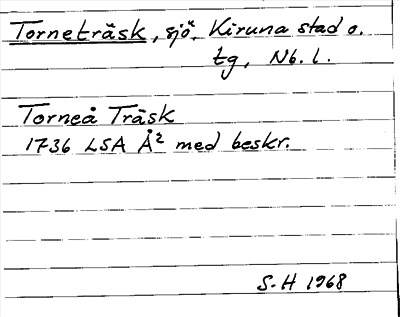 Torneträsk, sjö. Kiruna stad o.
tg, Nb. l.
Torneå Träsk
1736 LSA Å² med beskr.
S-H 1968